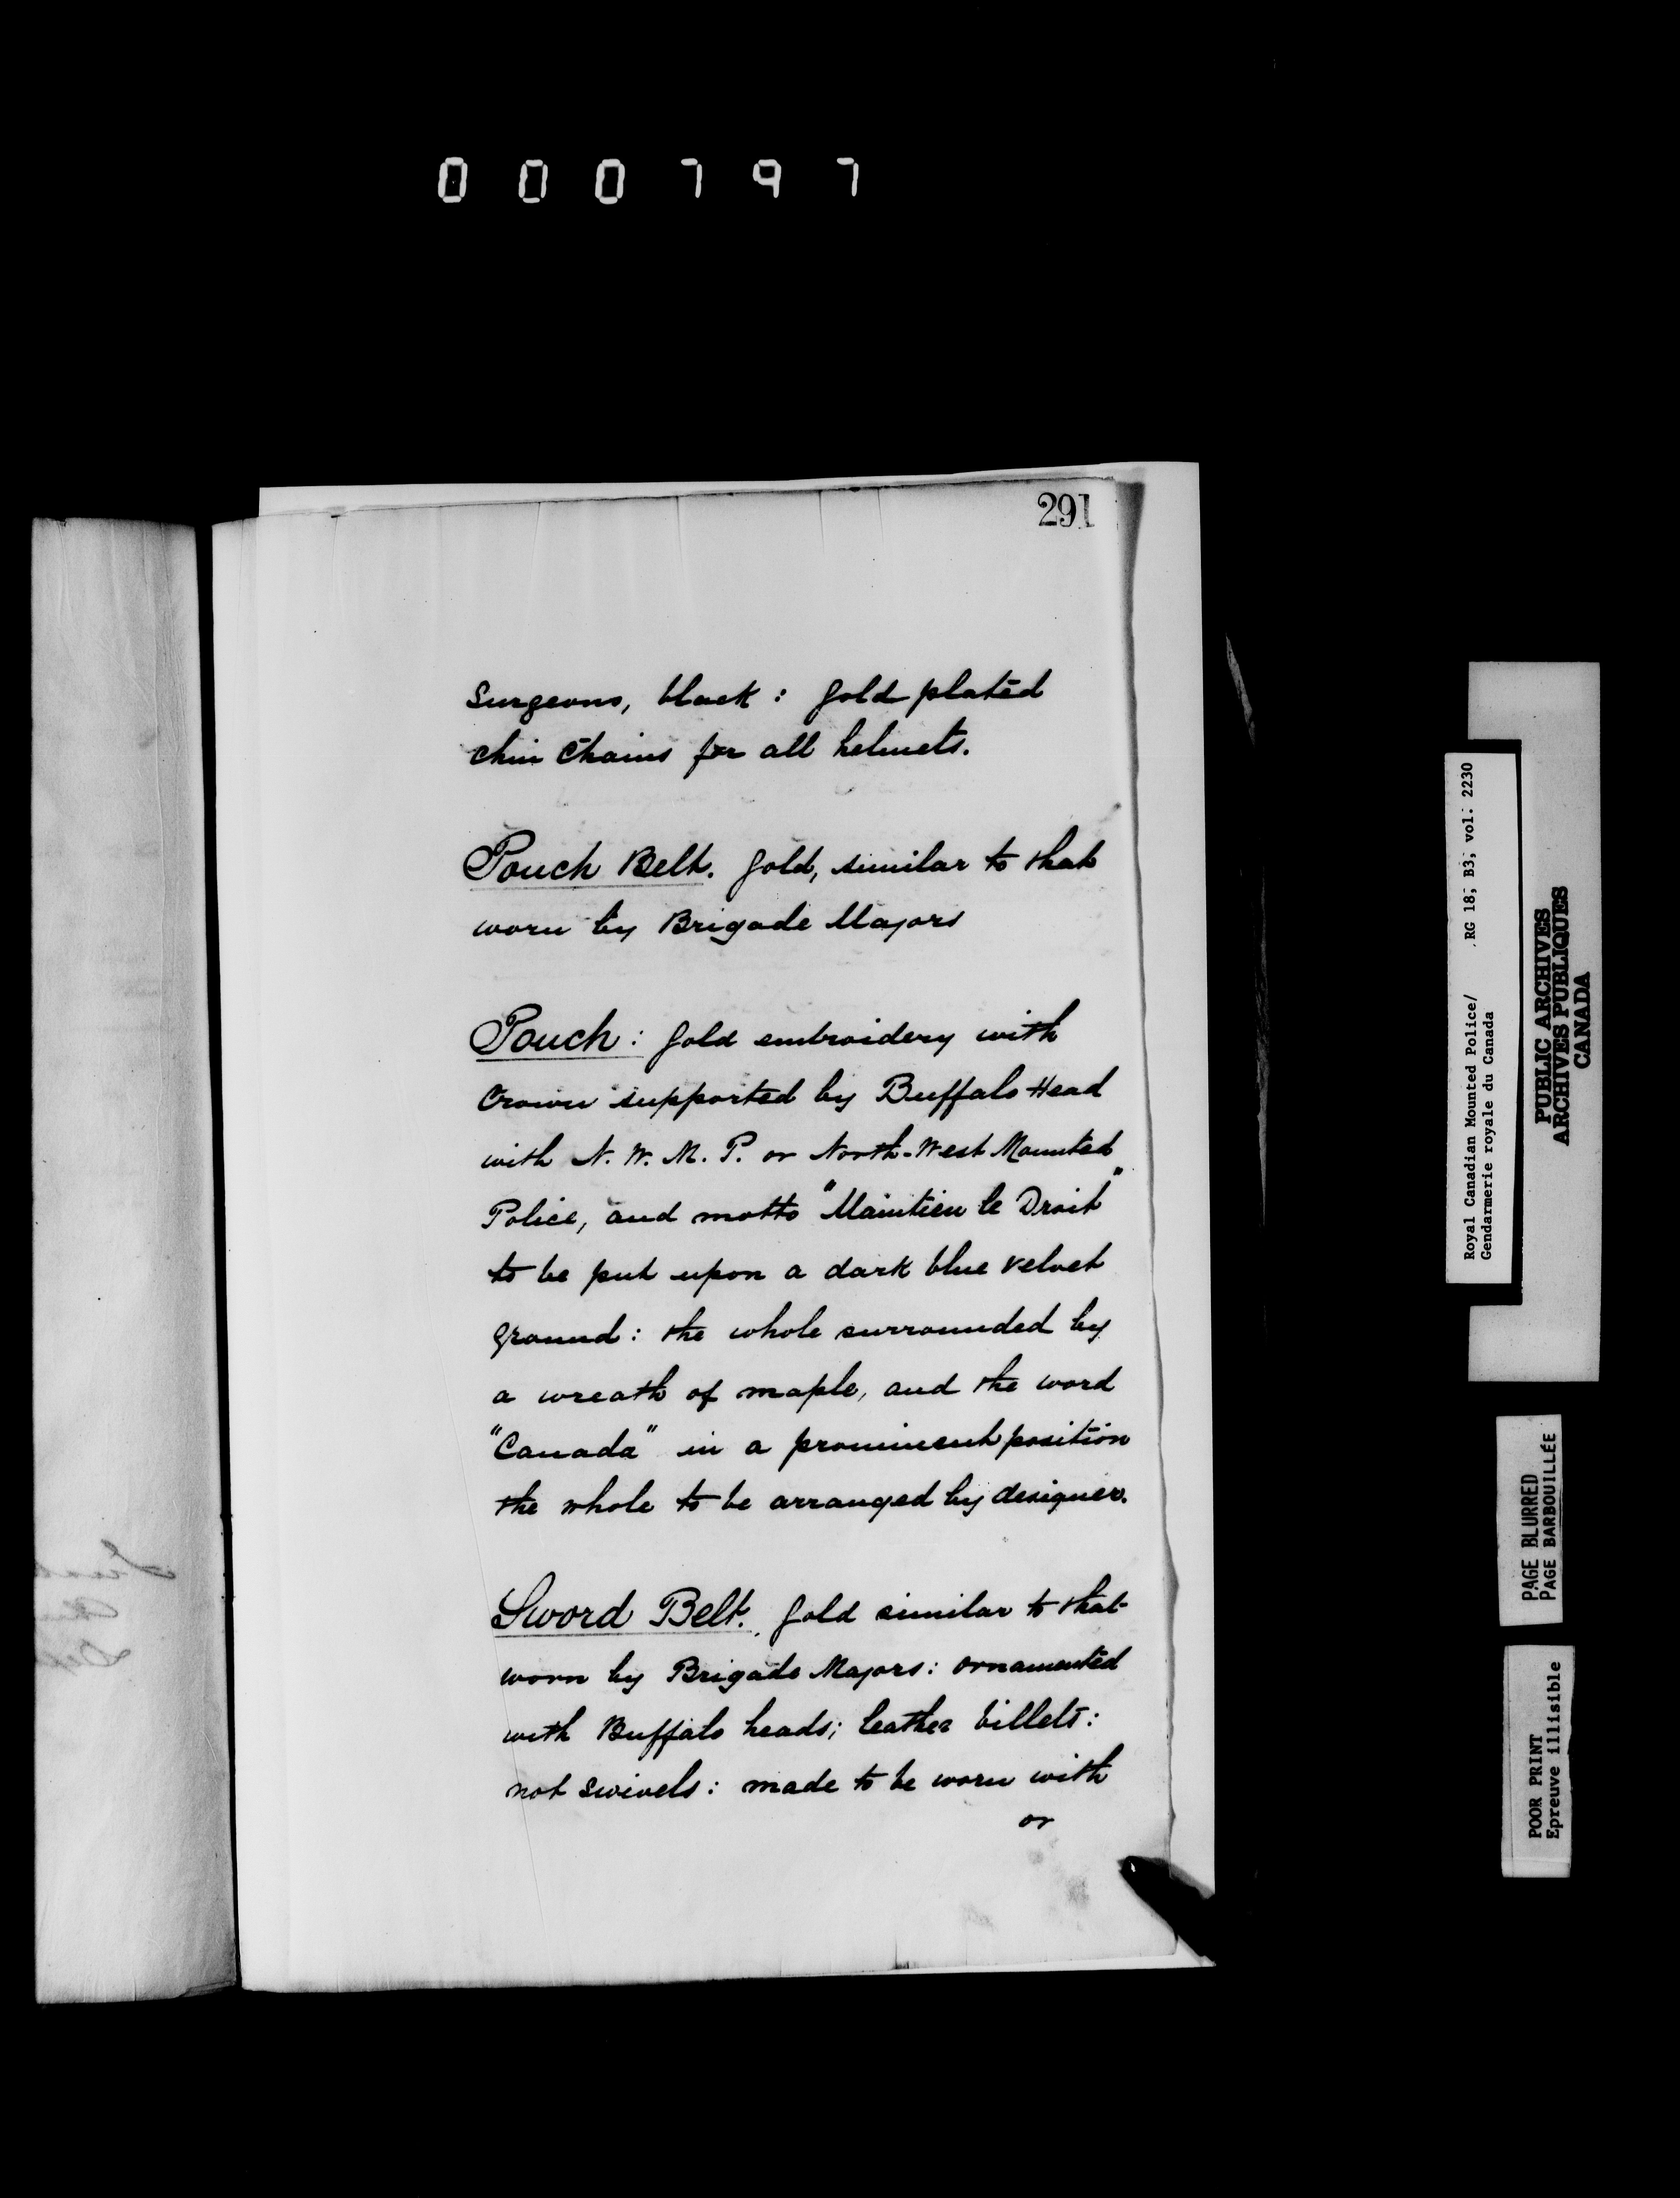 000797
291
Surgeons, black: Gold plated
chin chains for all helmets.
Pouch Belt. Gold, similar to that
worn by Brigade Majors
Pouch: Gold embroidery with
Crown supported by Buffalo Head
with N. W. M. P. or North-West Mounted
Police, and motto "Maintien le Droit"
to be put upon a dark blue velvet
ground: the whole surrounded by
a wreath of maple, and the word
"Canada" in a prominent position
the whole to be arranged by designer.
Sword Belt. Gold similar to that
worn by Brigade Majors: ornamented
with Buffalo heads; leather billets:
not swivels: made to be worn with
or
Royal Canadian Mounted Police/ RG 18, B3, vol. 2230
Gendarmerie royale du Canada
PUBLIC ARCHIVES
ARCHIVES PUBLIQUES
CANADA
PAGE BLURRED
PAGE BARBOUILLÉE
POOR PRINT
Epreuve illisible